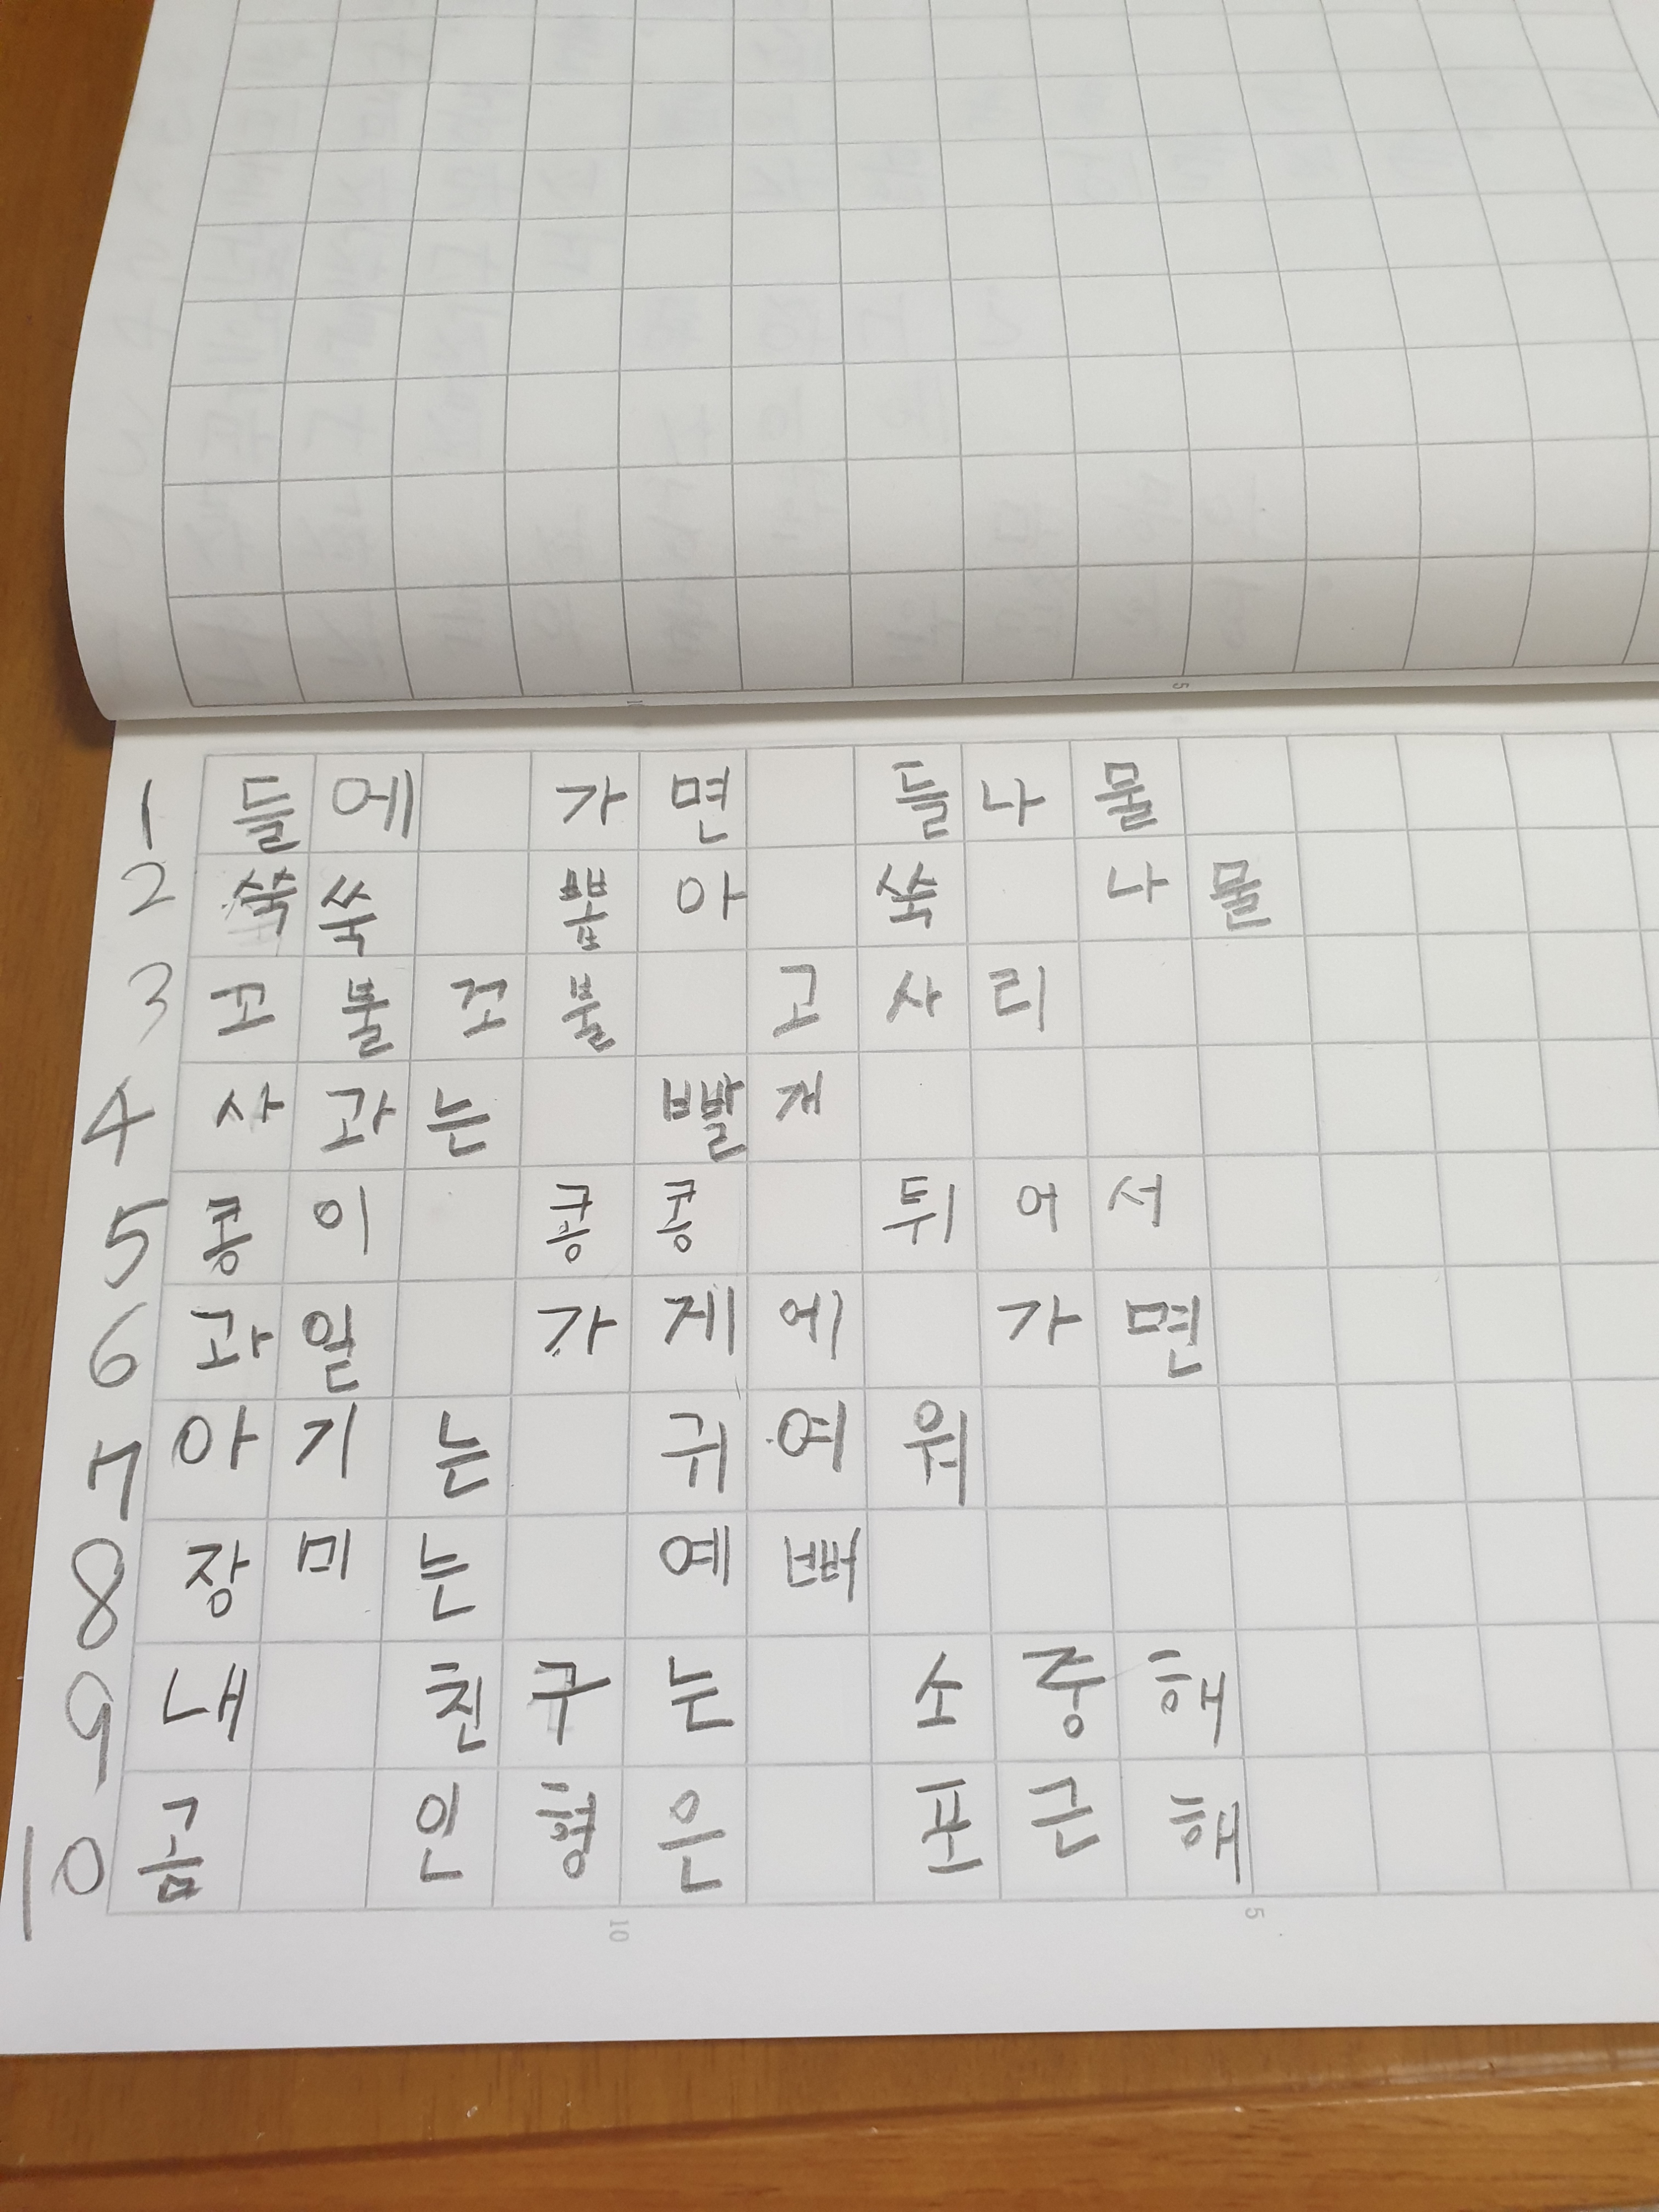 1 들에 가면 들나물
2 쑥쑥 뽑아 쑥 나물
3 꼬불꼬불 고사리
4 사과는 빨게
5 콩이 콩콩 튀어서
6 과일 가게에 가면
7 아기는 귀여워
8 장미는 예뻐
9 내 친구는 소중해
10 곰 인형은 포근해
10 5
5